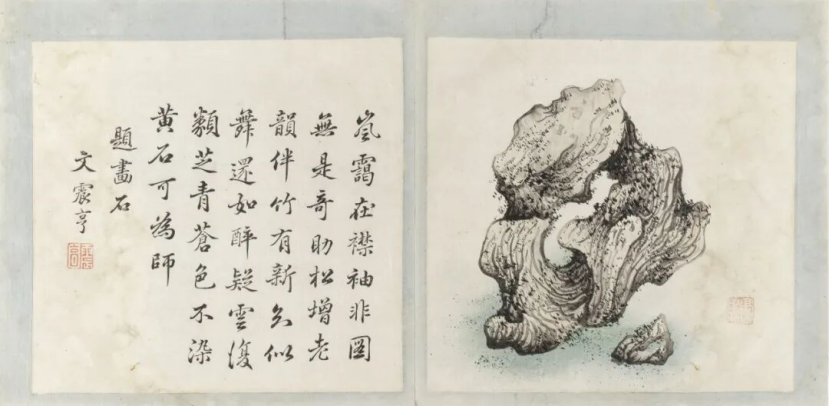 嵐靄在襟袖非圖
無是奇助松增老
韻伴竹有新似
舞還如醉疑雲復
類芝青蒼色不染
黄石可為師
題畫石
文震亨